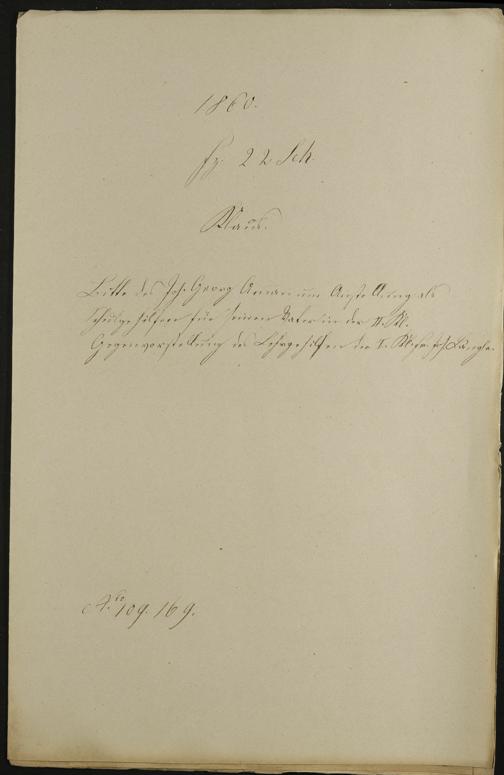 1860.
Fz. 22 Sch
Klaus.
Bitte des Joh. Georg Aman um Anstellung als
Schulgehilfen für seinen Vater in der II. Kl.
Gegenvorstellung des Lehrgehilfen der I. Kl.
No 109. 169.